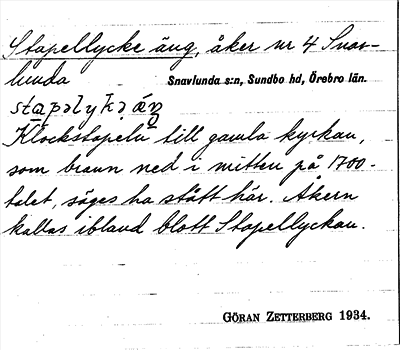 Stapellycke äng, åker nr 4 Snav-
lunda Snavlunda s:n, Sundbo hd, Örebro län.
stapəlykə äŋ
Klockstapeln till gamla kyrkan,
som brann ned i mitten på 1700-
talet, säges ha stått här. Åkern
kallas ibland blott Stapellyckan.
GÖRAN ZETTERBERG 1934.